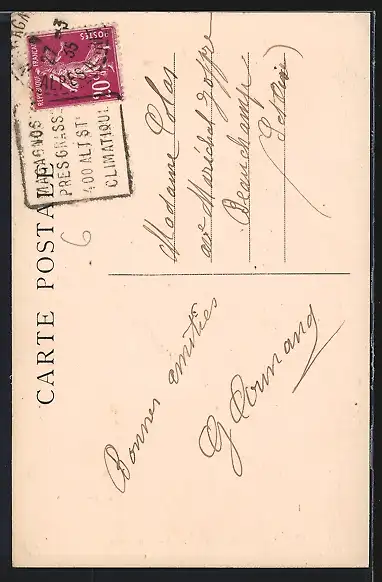 CARTE POSTALE
REPUBLIQUE FRANÇAISE
POSTES
20c
MAGAGNOSC
PRES GRASSE
400 ALT ST
CLIMATIQUE
6
Madame Colas
ave Maréchal Joffre
Beauchamp
(S et Oise)
Bonnes amitiés
G Armand